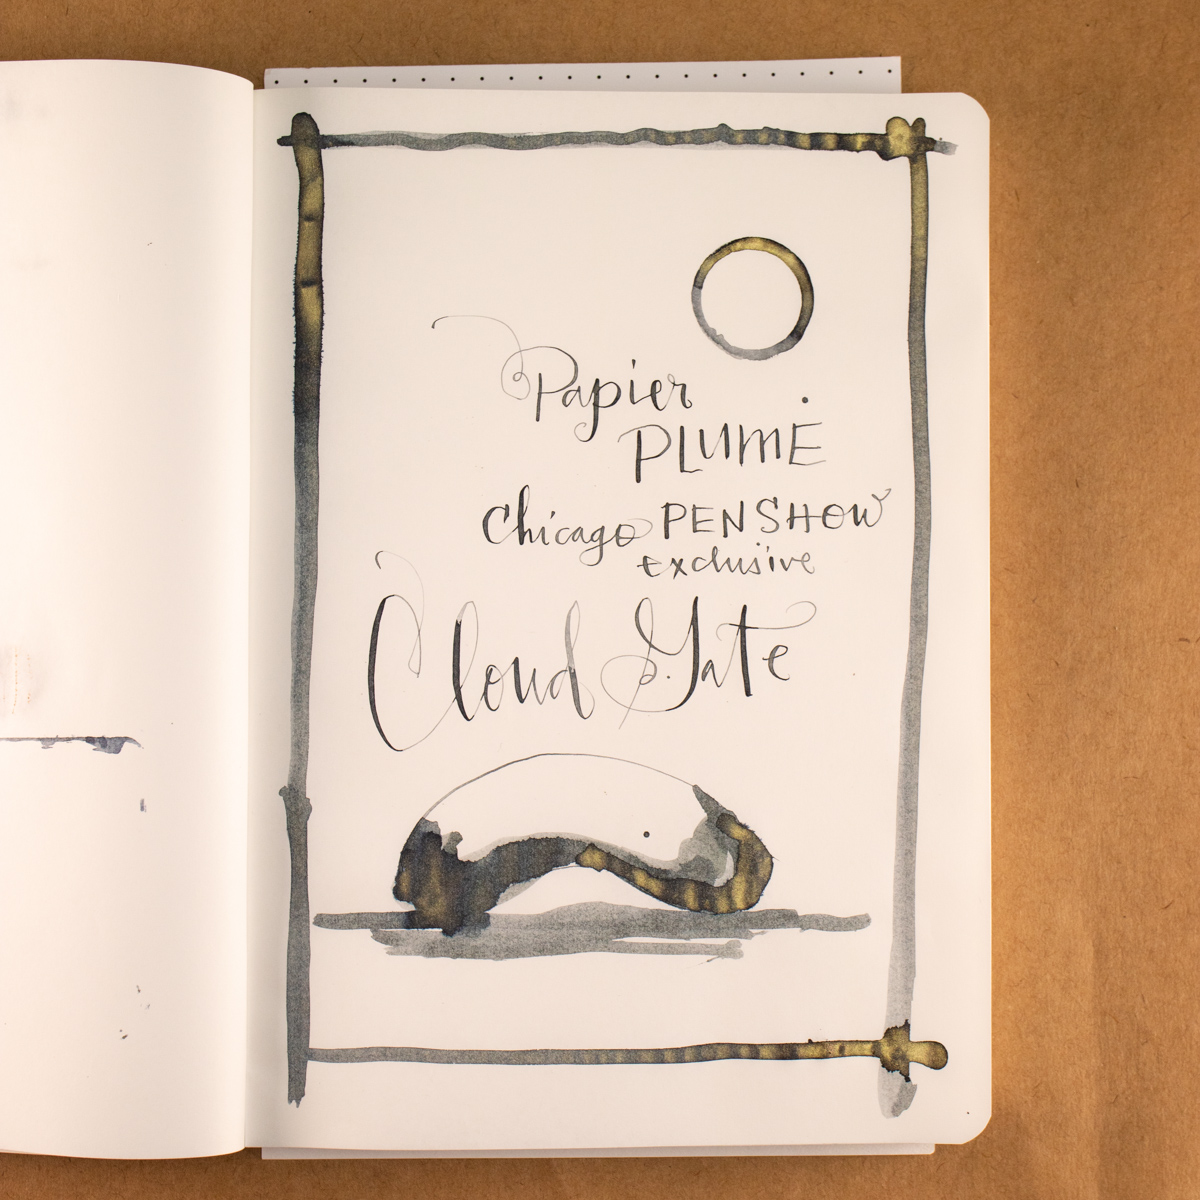 Papier
PLUME
Chicago PEN SHOW
exclusive
Cloud Gate